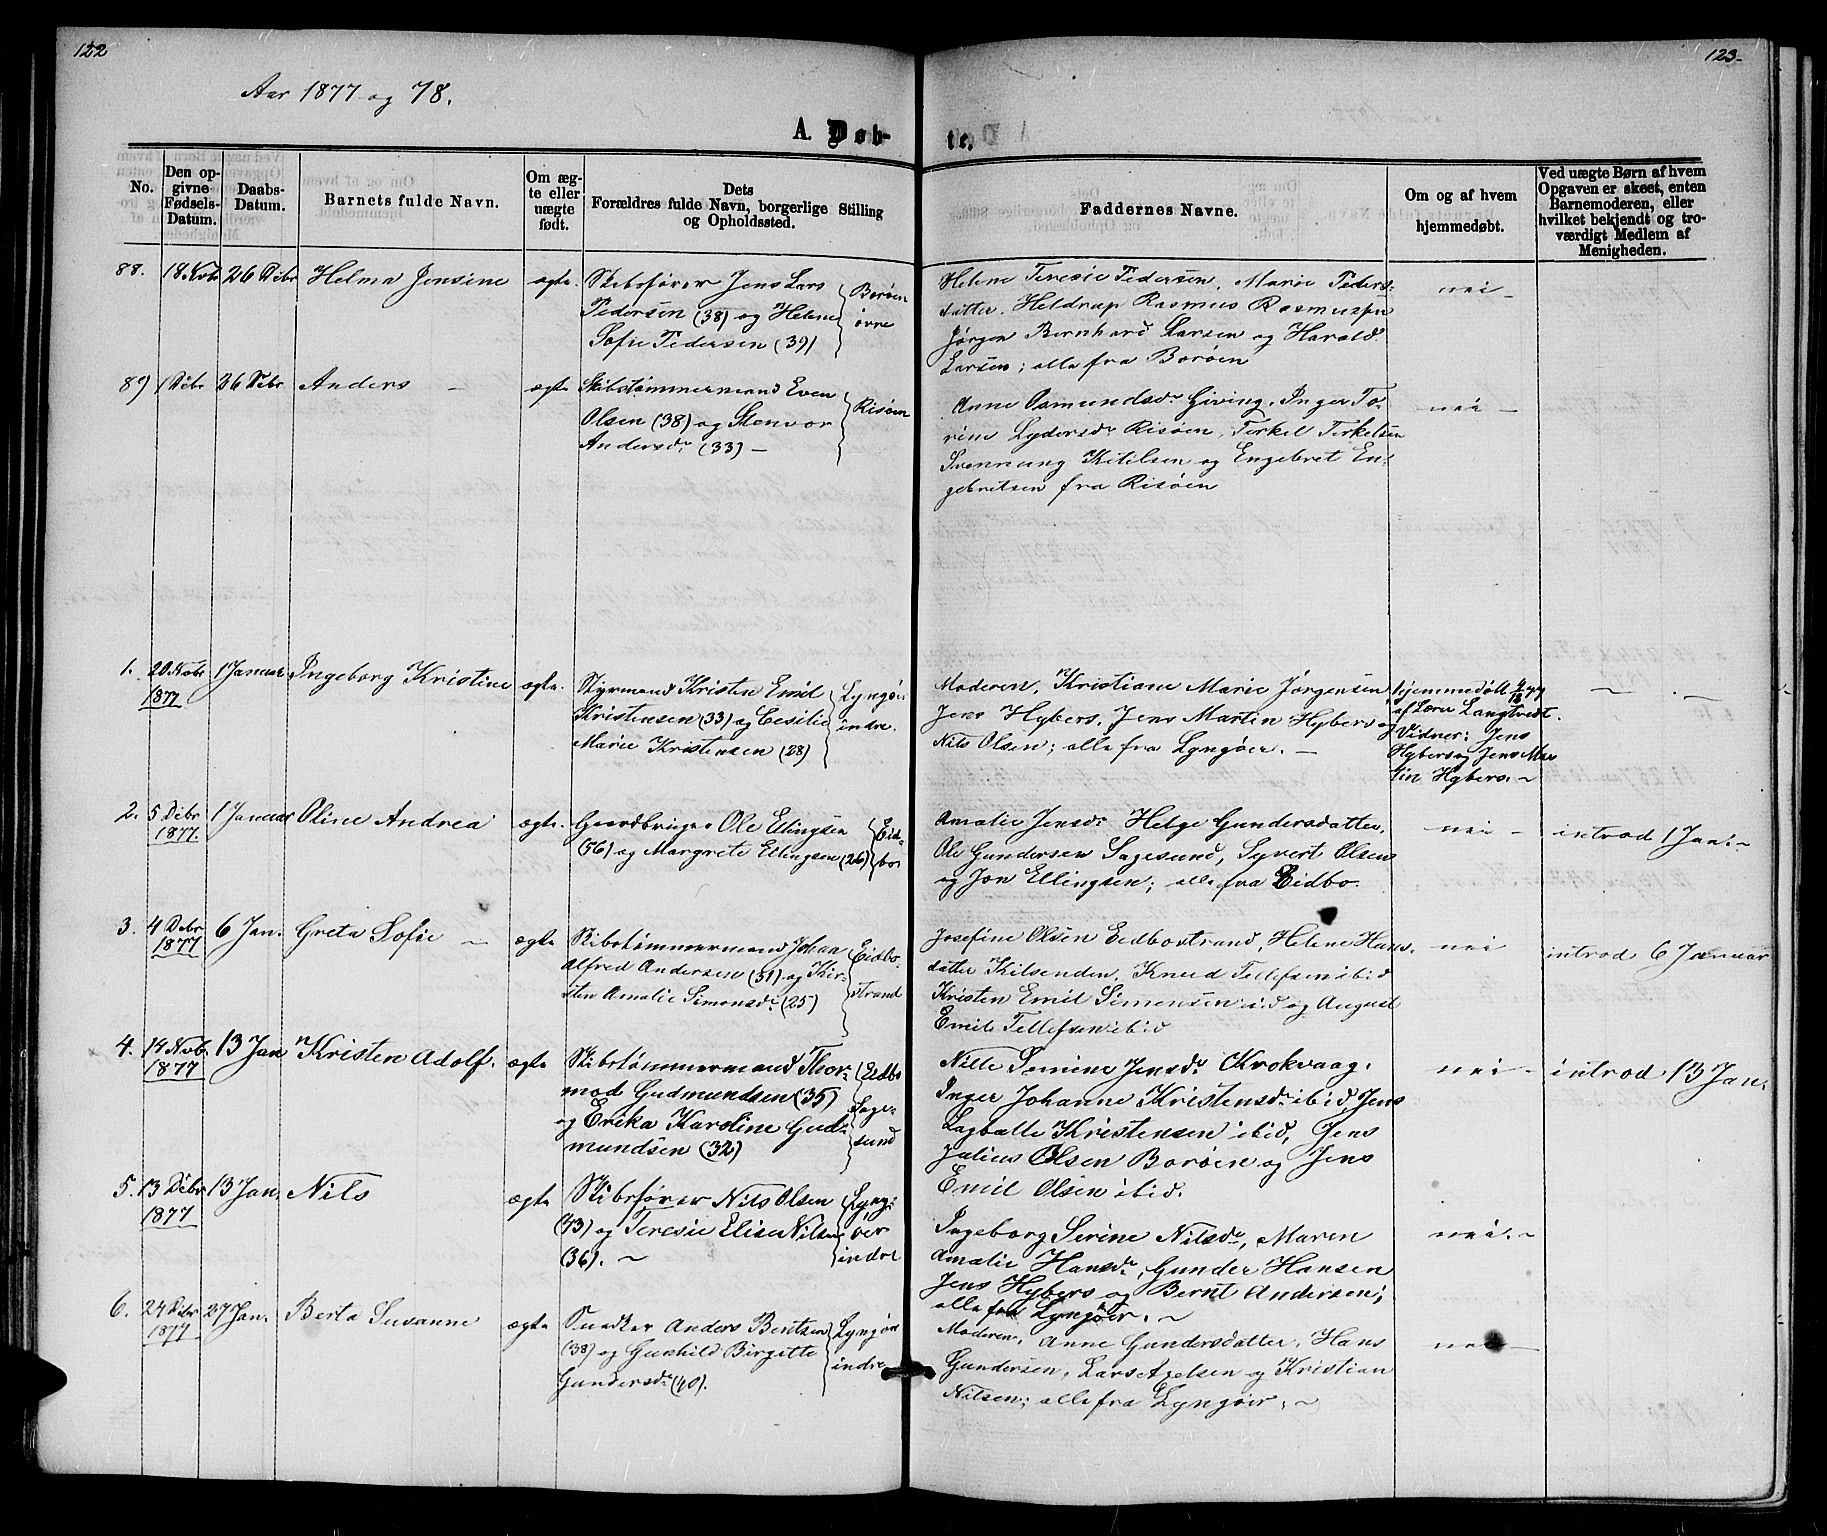 122
123-
Aar 1877 og 78.
A. Døb-
te.
No.
Den op-
givne
Fødsels-
Datum.
Daabs-
Datum.
Barnets fulde Navn.
Om æg-
te eller
uægte
født.
Dets
Forældres fulde Navn, borgerlige Stilling
og Opholdssted.
Faddernes Navne.
Om og af hvem
hjemmedøbt.
Ved uægte Børn af hvem
Opgaven er skeet, enten
Barnemoderen, eller
hvilket bekjendt og tro-
værdigt Medlem af
Menigheden.
88. 18 Nvbr 26 Debr Helma Jensine ægte.
Skibsfører Jens Lars
Pedersen (38) og Helene
Sofie Pedersen (39)
Borøen
øvre
Helene Teresie Pedersen, Marie Peders-
datter, Heldrap Rasmus Rasmussen
Jørgen Bernhard Larsen og Harald
Larsen; alle fra Borøen
nei -
89) 1 Debr 26 Debr Anders - ægte
Skibstømmermand Even
Olsen (38) og Stenvor
Andersdr (33) -
Risøen
Anne Osmundsdr Giving, Inger To-
rine Lydersdr Risøen, Terkel Terkelsen
Svennung Kitilsen og Engebret En-
gebritsen fra Risøen
nei -
1. 20 Nvbr 1877 1 Januar Ingeborg Kristine ægte.
Styrmand Kristen Emil
Kristensen (33) og Cesilie
Marie Kristensen (28)
Lyngøer
indre.
Moderen, Kristiane Marie Jørgensen
Jens Hybers, Jens Martin Hybers og
Nils Olsen; alle fra Lyngøer. -
hjemmedøbt 4/12 77
af Lærer Langtvedt.
Vidner: Jens
Hybers og Jens Mar-
tin Hybers. ~
2. 5 Debr 1877. 1 Januar Oline Andrea ægte.
Gaardbruger Ole Ellingsen
(56) og Margrete Ellingsen (26)
Eid-
bo
Amalie Jensdr Helge Gundersdatter,
Ole Gundersen Sagesund, Syvert Olsen
og Jon Ellingsen; alle fra Eidbo.
nei -
introd 1 Jan: ~
3. 4 Debr 1877 6 Jan. Greta Sofie ~ ægte
Skibstømmermand Johan
Alfred Andersen (31) og Kir-
sten Amalie Simonsdr (25)
Eidbo-
strand
Josefine Olsen Eidbostrand, Helene Hans-
datter Kilsenden, Knud Tellefsen ibid
Kristen Emil Simensen ibid og August
Emil Tellefsen ibid
nei
introd 6 Januar
4. 14 Nvb. 1877 13 Jan Kristen Adolf. ægte
Skibstømmermand Thor-
mod Gudmundsen (35)
og Erika Karoline Gud-
mundsen (32)
Eidbo
Sage-
sund
Nille Semine Jensdr Krokvaag,
Inger Johanne Kristensdr ibid, Jens
Lagbælte Kristensen ibid, Jens
Julius Olsen Borøen og Jens
Emil Olsen ibid.
nei -
introd 13 Jan.
5. 13 Debr 1877 13 Jan. Nils ægte
Skibsfører Nils Olsen
(43) og Teresie Elise Nilsen
(36). ~
Lyng-
øer
indre
Ingeborg Serine Nilsdr, Maren
Amalie Hansdr, Gunder Hansen
Jens Hybers og Bernt Andersen;
alle fra Lyngøer. ~
nei. ~
6. 24 Debr 1877 27 Jan. Berta Susanne ægte
Snedker Anders Bentsen
(38) og Gunhild Birgitte
Gundersdr (40).
Lyngøer
indre
Moderen, Anne Gundersdatter, Hans
Gundersen, Lars Axelsen og Kristian
Nilsen; alle fra Lyngøer. ~
nei -